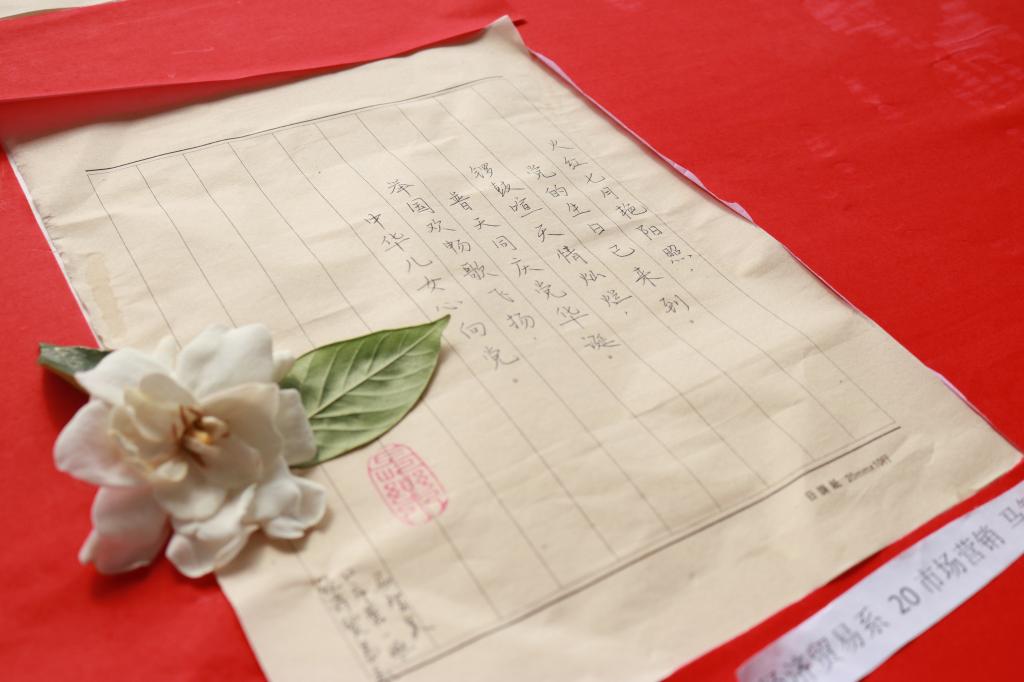 火红七月艳阳照，
党的生日已来到。
锣鼓喧天情灿烂，
普天同庆党华诞。
举国欢畅歌飞扬，
中华儿女心向党。
20mmx10行
济贸易系 20 市场营销 马